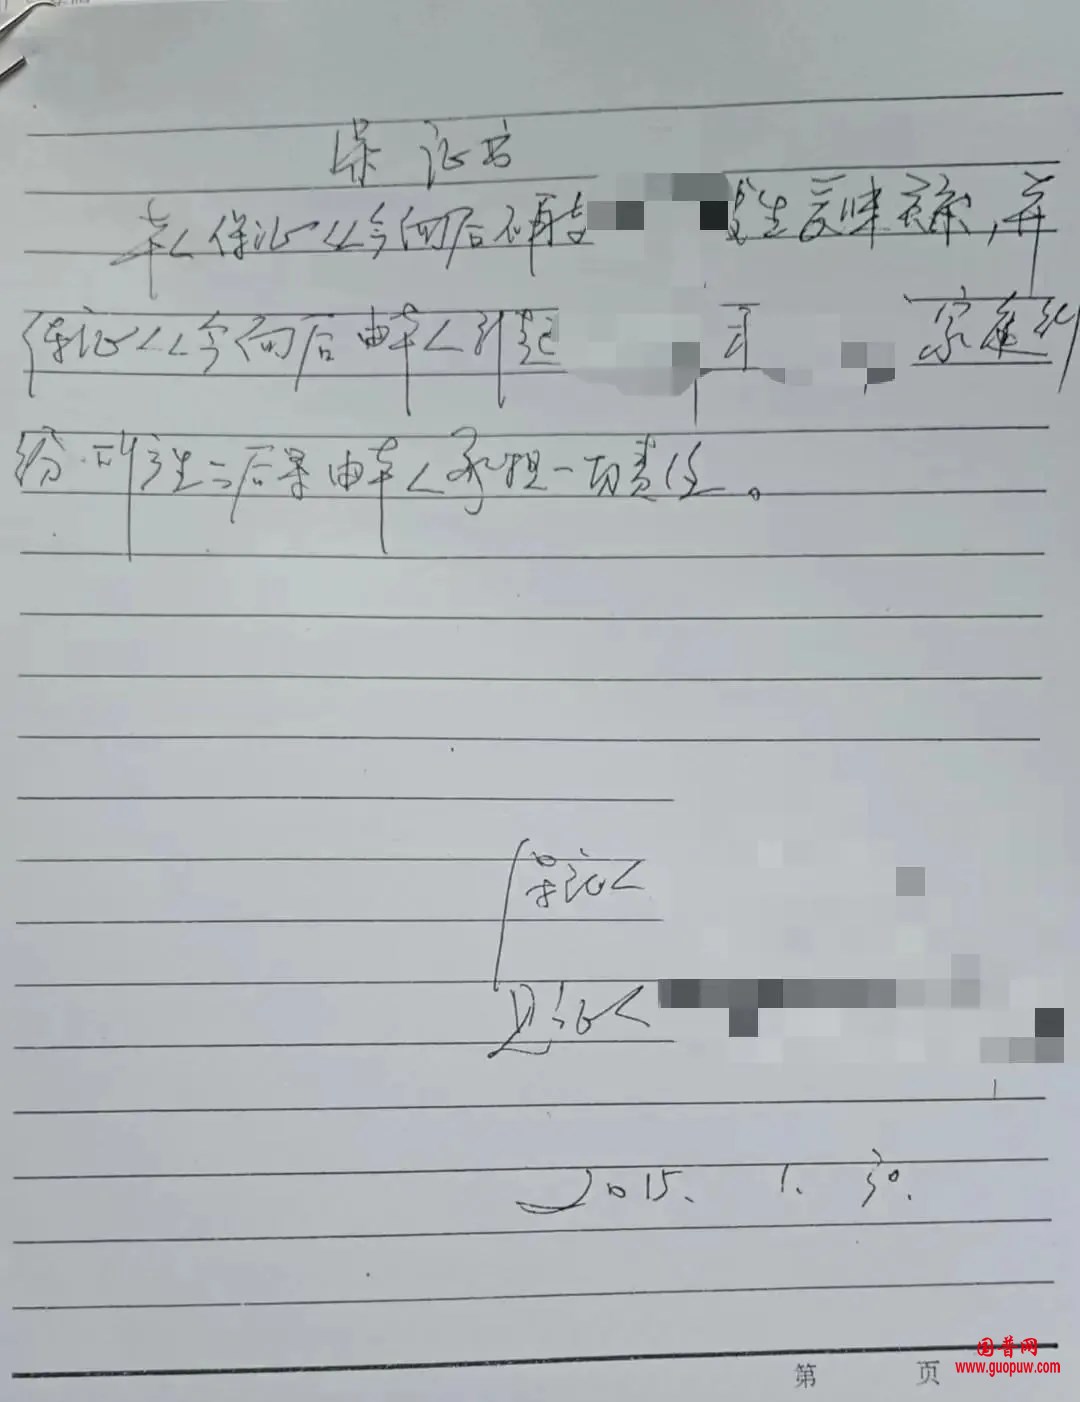 保证书
本人保证从今向后不再与 发生爱昧关系，并
保证从今向后由本人引起 家庭纠
纷.所产生二后果由本人承担一切责任。
保证人
见证人
2015. 1. 30.
第 页
国普网
www.guopuw.com